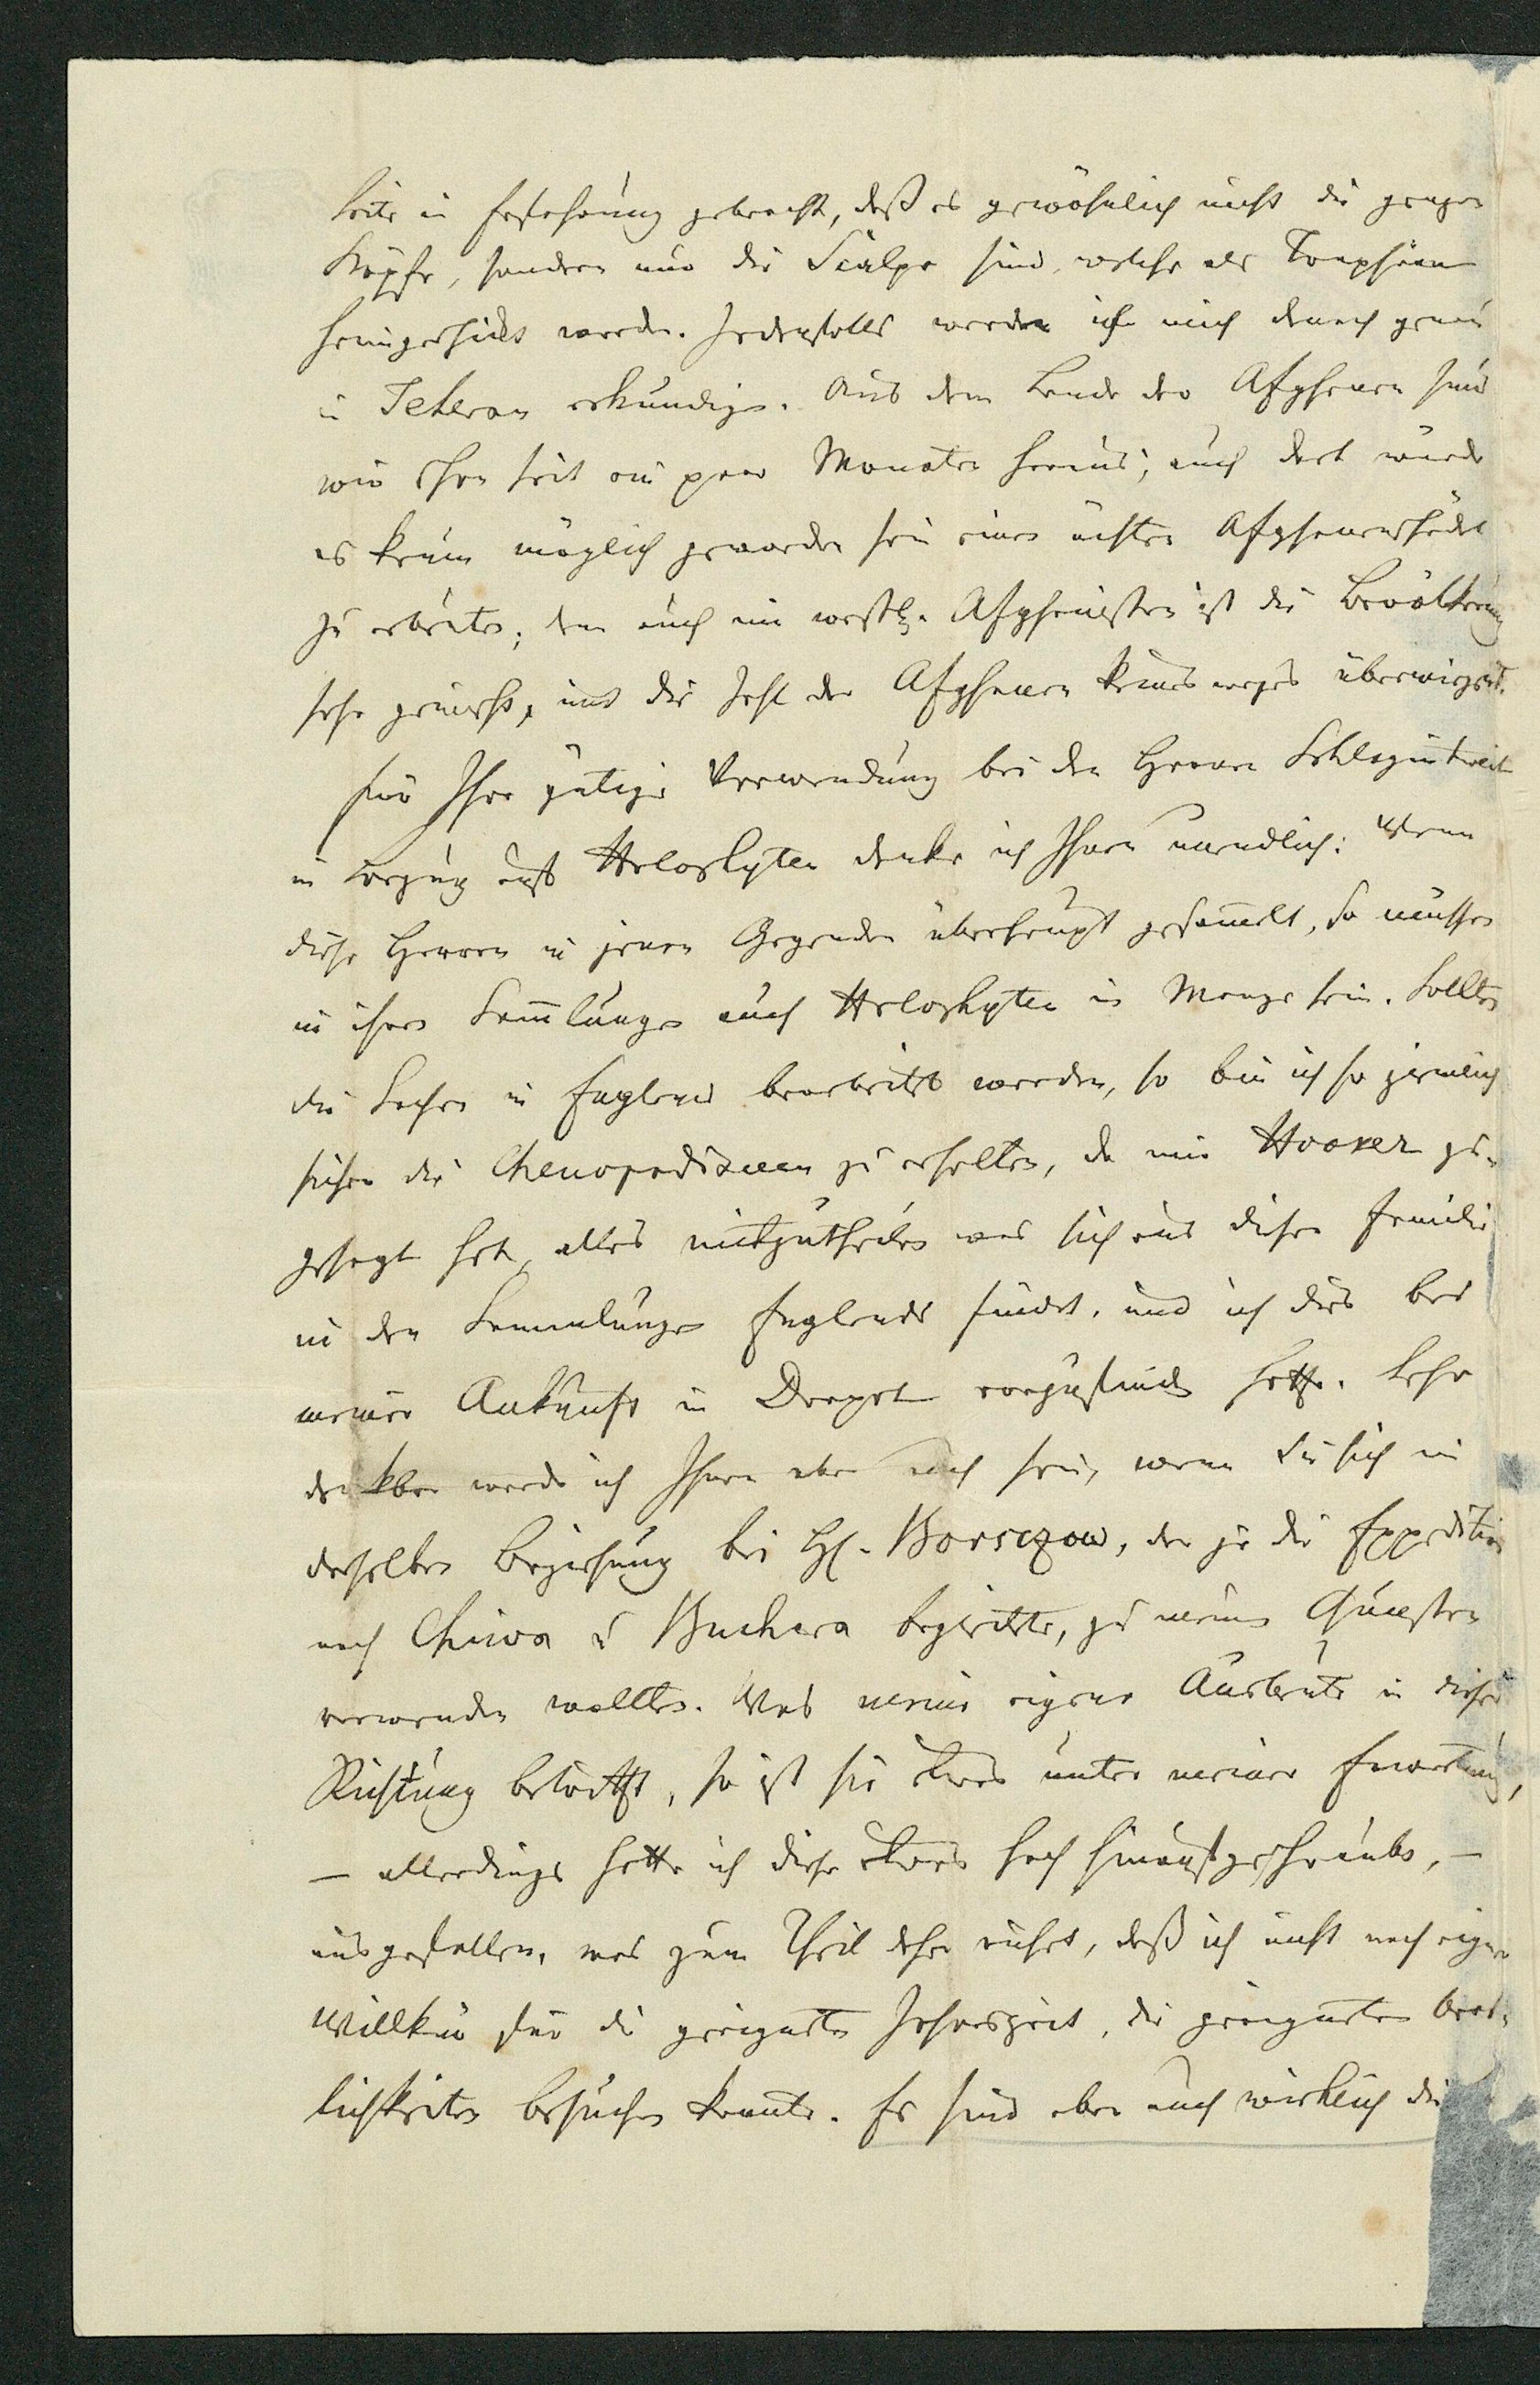 Seite in Erfahrung gebracht, daß es gewöhnlich nicht die ganzen
Köpfe, sondern nur die Scalpe sind, welche als Trophäen
heimgeschickt werden. Jedenfalls werden ich mich danach genau
in Teheran erkundigen. Aus dem Lande der Afghanen sind
wir schon seit ein paar Monaten heraus; auch dort würde
es kaum möglich geworden sein einen ächten Afghanenschädel
zu erbeuten; denn auch im westl. Afghanistan ist die Bevölkerung
sehr gemischt, und die Zahl der Afghanen keineswegs überwiegend.
Für Ihre gütige Verwendung bei den Herren Schlagintweit
in Bezug auf Halophyten danke ich Ihnen unendlich: Wenn
diese Herren in jenen Gegenden überhaupt gesammelt, so müssen
in ihren Sammlungen auch Halophyten in Menge sein. Sollten
die Sachen in England bearbeitet werden, so bin ich so ziemlich
sicher die Chenopodiaceen zu erhalten, da mir Hooker zu-
gesagt hat, alles mitzutheilen was sich aus dieser Familie
in den Sammlungen Englands findet, und ich dies bei
meiner Ankunft in Dorpat vorzufinden hoffe. Sehr
dankbar werde ich Ihnen aber auch sein, wenn Sie sich in
derselben Beziehung bei H. Borsczow, der ja die Expedition
nach Chiwa u Buchara begleitete, zu meinen Gunsten
verwenden wollten. Was meine eigene Ausbeute in dieser
Richtung betrifft, so ist sie etwas unter meiner Erwartung,
— allerdings hatte ich diese etwas hoch hinaufgeschraubt, —
ausgefallen, was zum Theil daher rührt, daß ich nicht nach eigner
Willkür für die geeignete Jahreszeit, die geeigneten Oert-
lichkeiten besuchen konnte. Es sind aber auch wirklich die